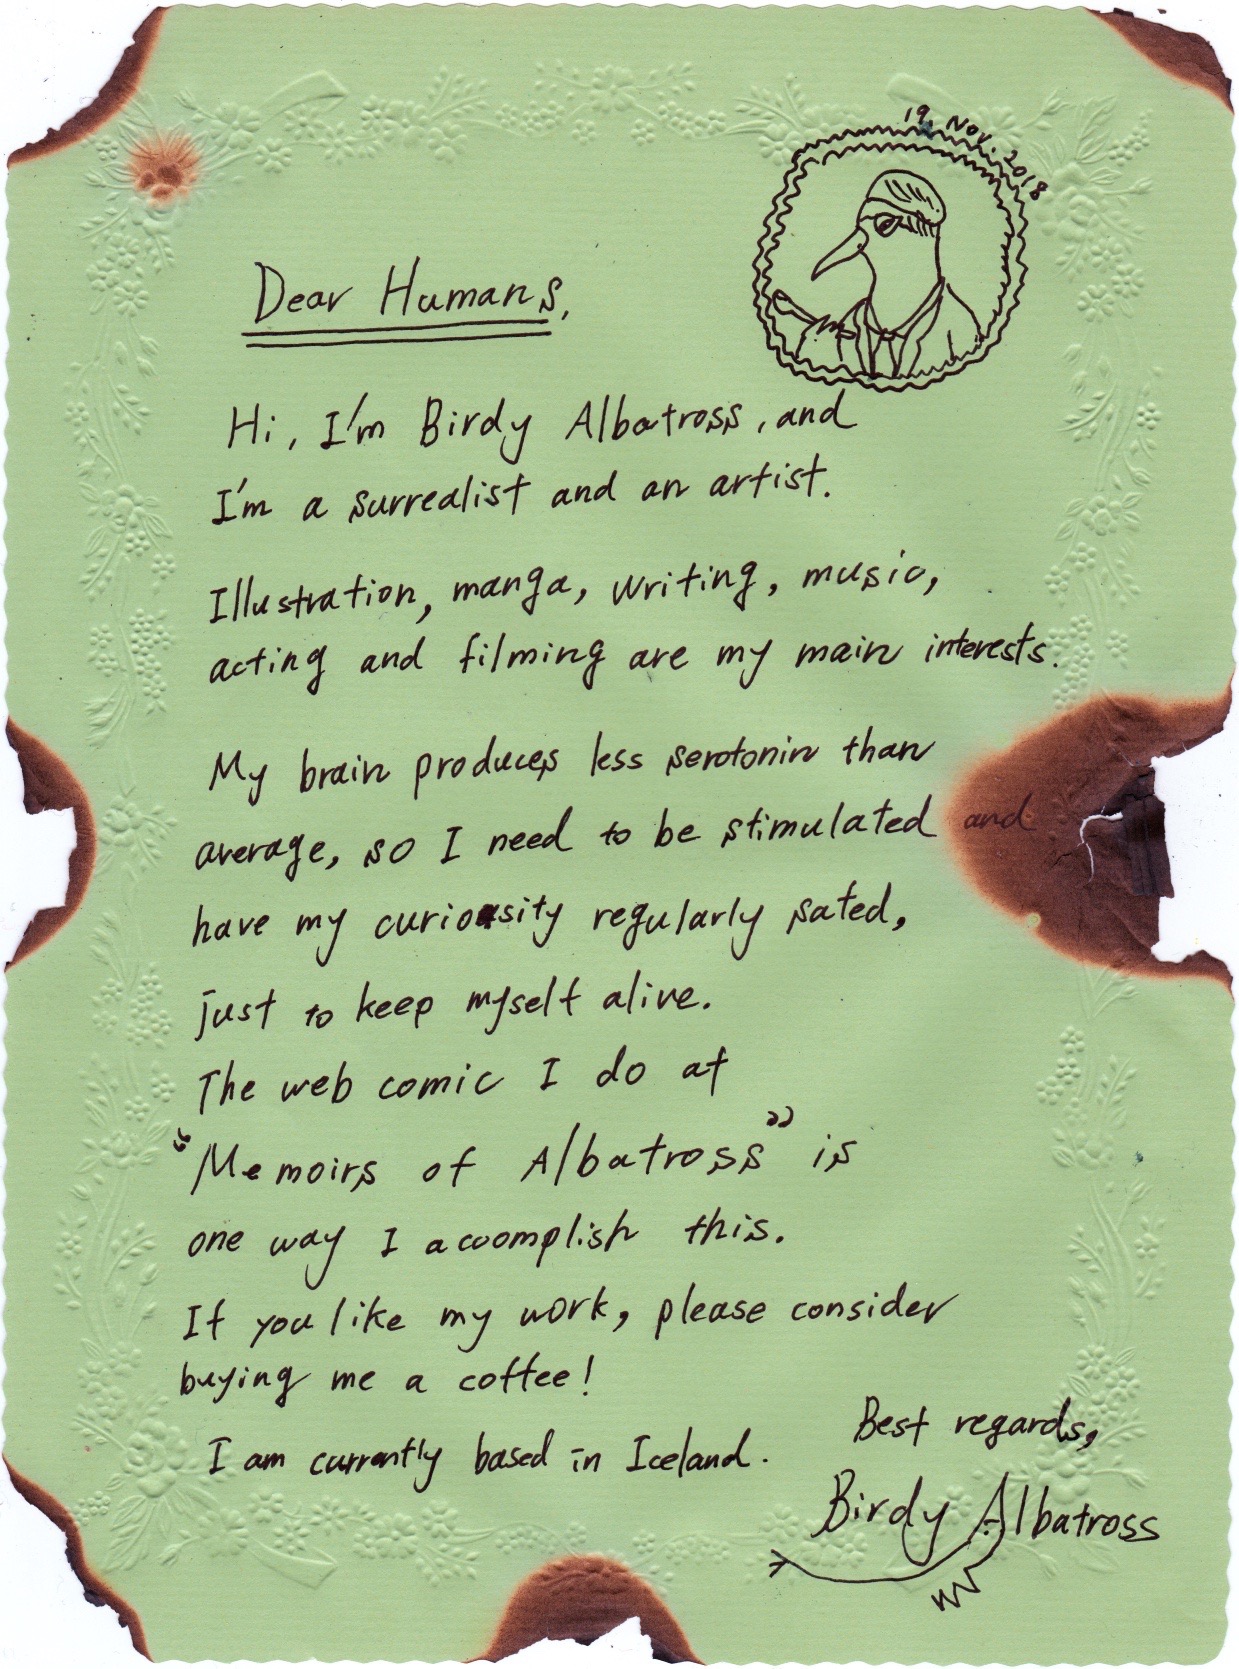 19. Nov. 2018
Dear Humans,
Hi, I'm Birdy Albatross, and
I'm a surrealist and an artist.
Illustration, manga, writing, music,
acting and filming are my main interests.
My brain produces less serotonin than
average, so I need to be stimulated and
have my curiosity regularly sated,
just to keep myself alive.
The web comic I do at
"Memoirs of Albatross" is
one way I accomplish this.
If you like my work, please consider
buying me a coffee!
I am currently based in Iceland.
Best regards,
Birdy Albatross